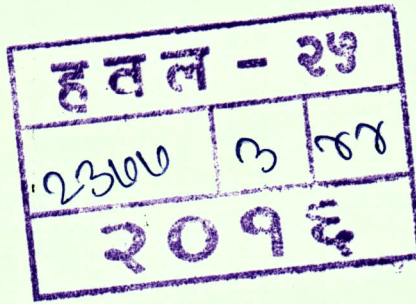 हवल - २५
२३७७ ३ ४४
२०१६